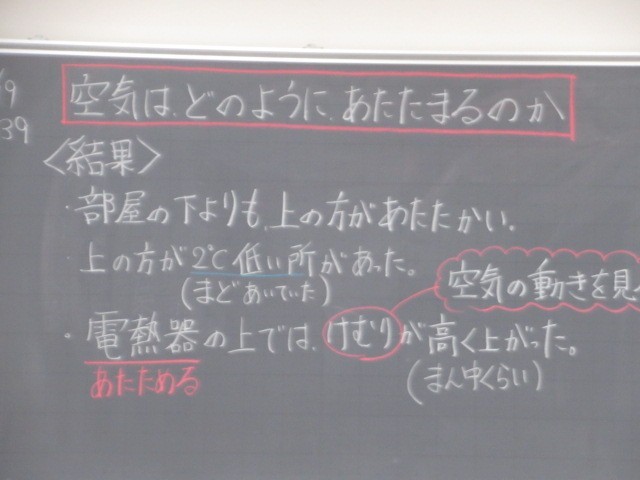 /9
39
空気は、どのように、あたたまるのか
〈結果〉
・部屋の下よりも、上の方があたたかい。
・上の方が2℃低い所があった。
(まどあいていた)
空気の動きを見
・電熱器の上では、けむりが高く上がった。
あたためる
(まん中くらい)